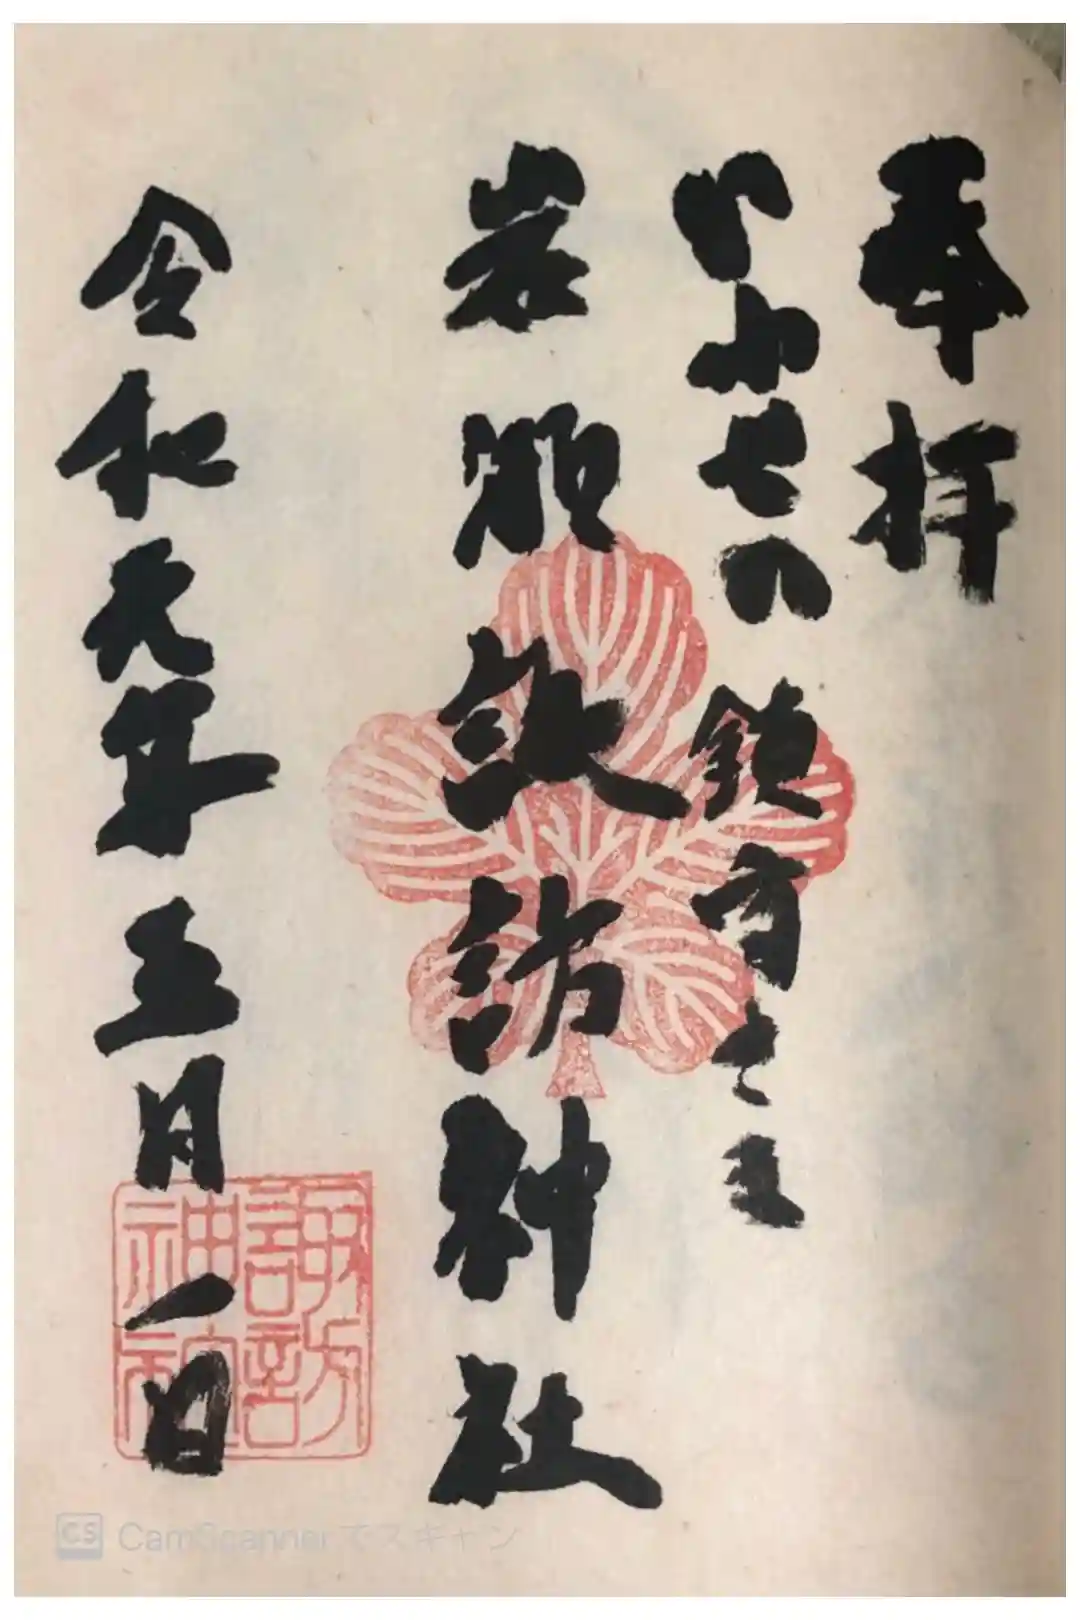 奉拝
いわせの鎮守さま
岩瀬諏訪神社
令和元年五月一日
諏訪
神社
CS CamScannerでスキャン